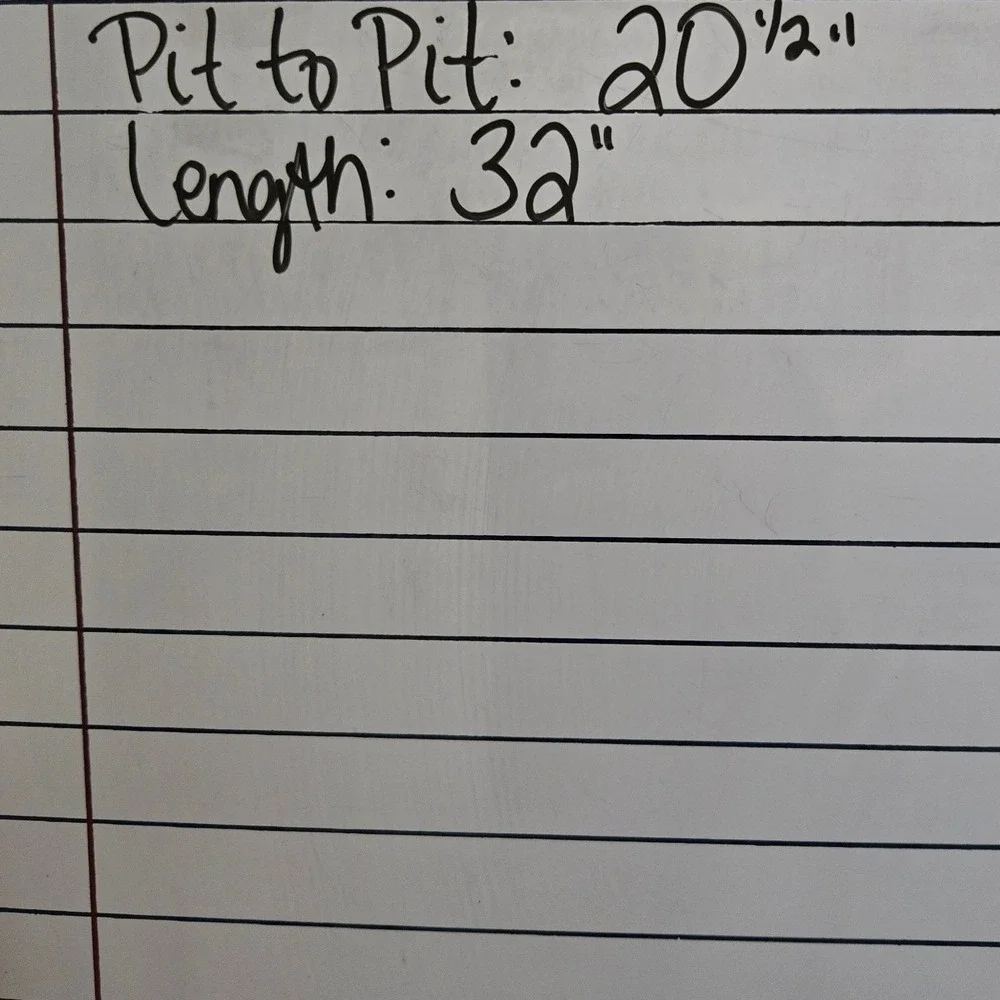 Pit to Pit: 20 1/2"
Length: 32"